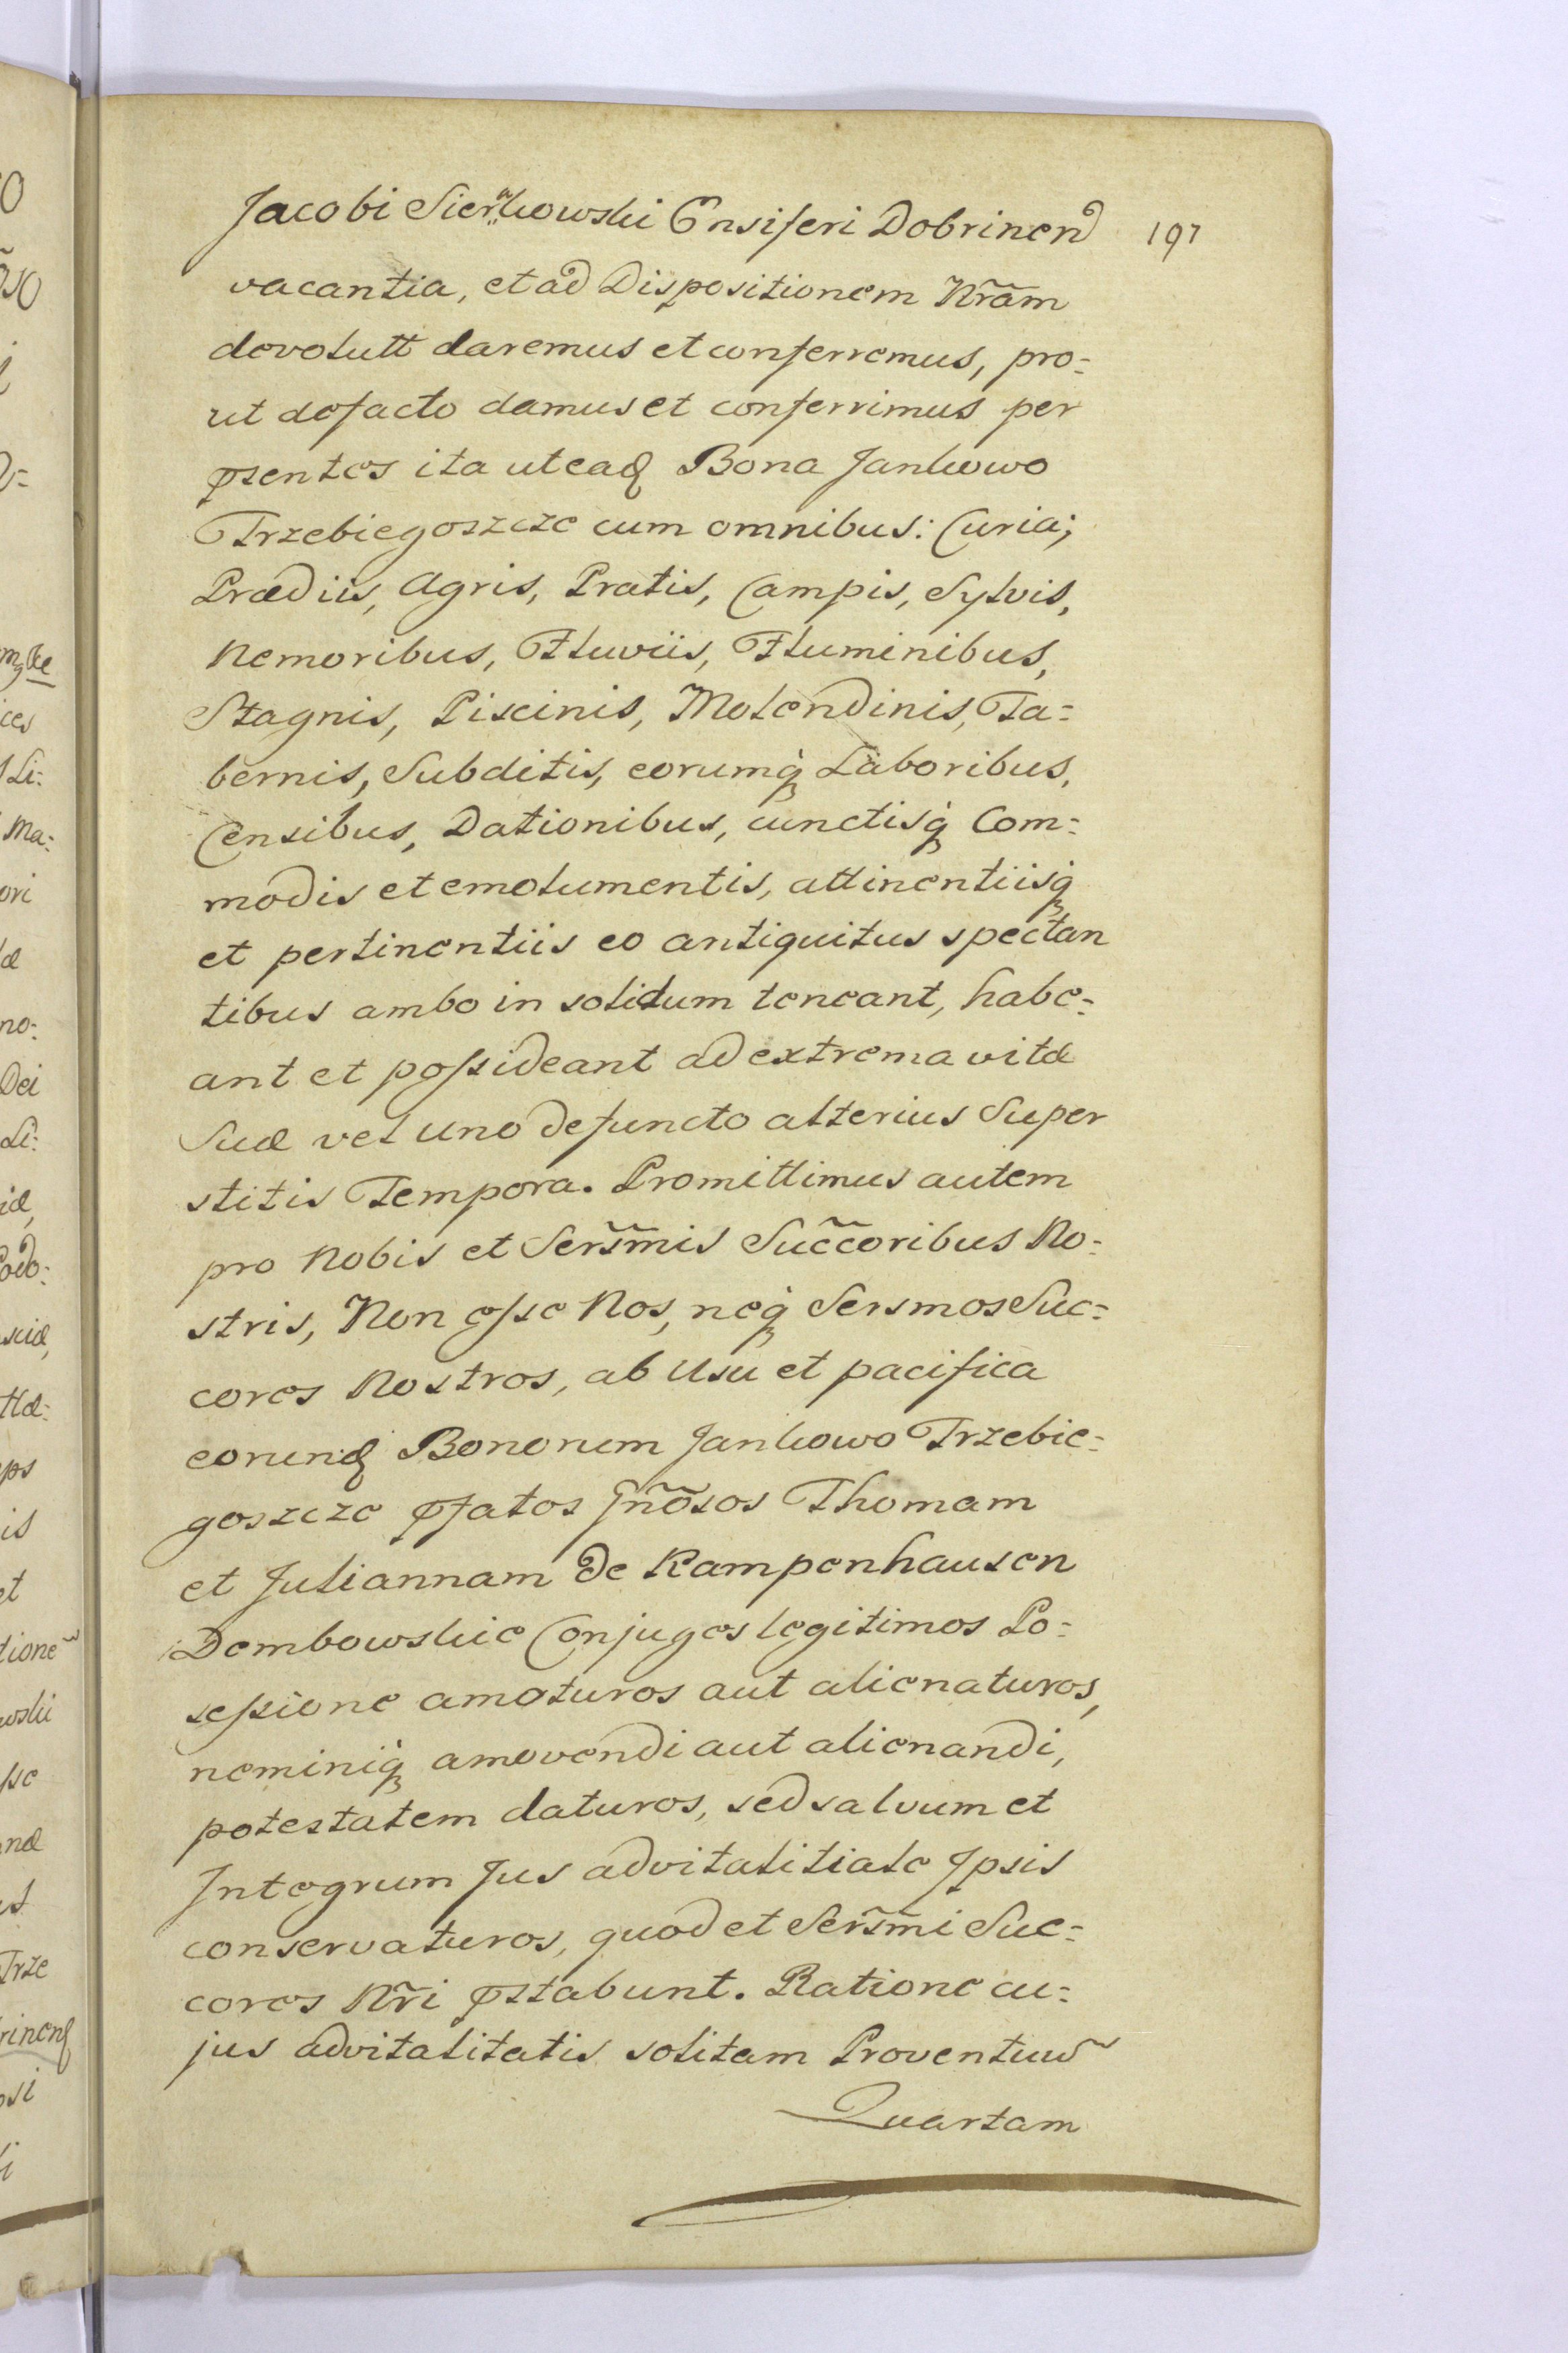 Jacobi Sierakowski Ensiferi Dobrinen
197
vacantia, et ad Dispositionem Nrãm
devolutt daremus et conferremus, pro=
ut defacto damus et conferrimus per
psentes ita ut eadq Bona Jankowo
Trzebiegoszcze cum omnibus: Curia;
Prædiis, Agris, Pratis, Campis, Sylvis,
Nemoribus, Fluviis, Fluminibus,
Stagnis, Piscinis, Molendinis, Ta=
bernis, Subditis, eorumq Laboribus,
Censibus, Dationibus, cunctisq Com=
modis et emolumentis, attinentiisq
et pertinentiis eo antiquitus spectan
tibus ambo in solidum teneant, habe=
ant et possideant ad extrema vitæ
Suæ vel uno defuncto alterius Super
stitis Tempora. Promittimus autem
pro Nobis et Sers̃mis Succ̃oribus No=
stris, Non esse Nos, neq Sersmos Suc=
cores Nostros, ab Usu et pacifica
eorundq Bonorum Jankowo Trzebie=
goszcze pfatos Gnõsos Thomam
et Juliannam de Kampenhausen
Dembowskie Conjuges legitimos Po=
sessione amoturos aut alienaturos,
neminiq amovendi aut alienandi,
potestatem daturos, sed salvum et
Integrum Jus advitalitiale Ipsis
conservaturos, quod et Sers̃mi Suc=
cores Nr̃i pstabunt. Ratione cu=
jus advitalitatis solitam Proventuũ
Quartam